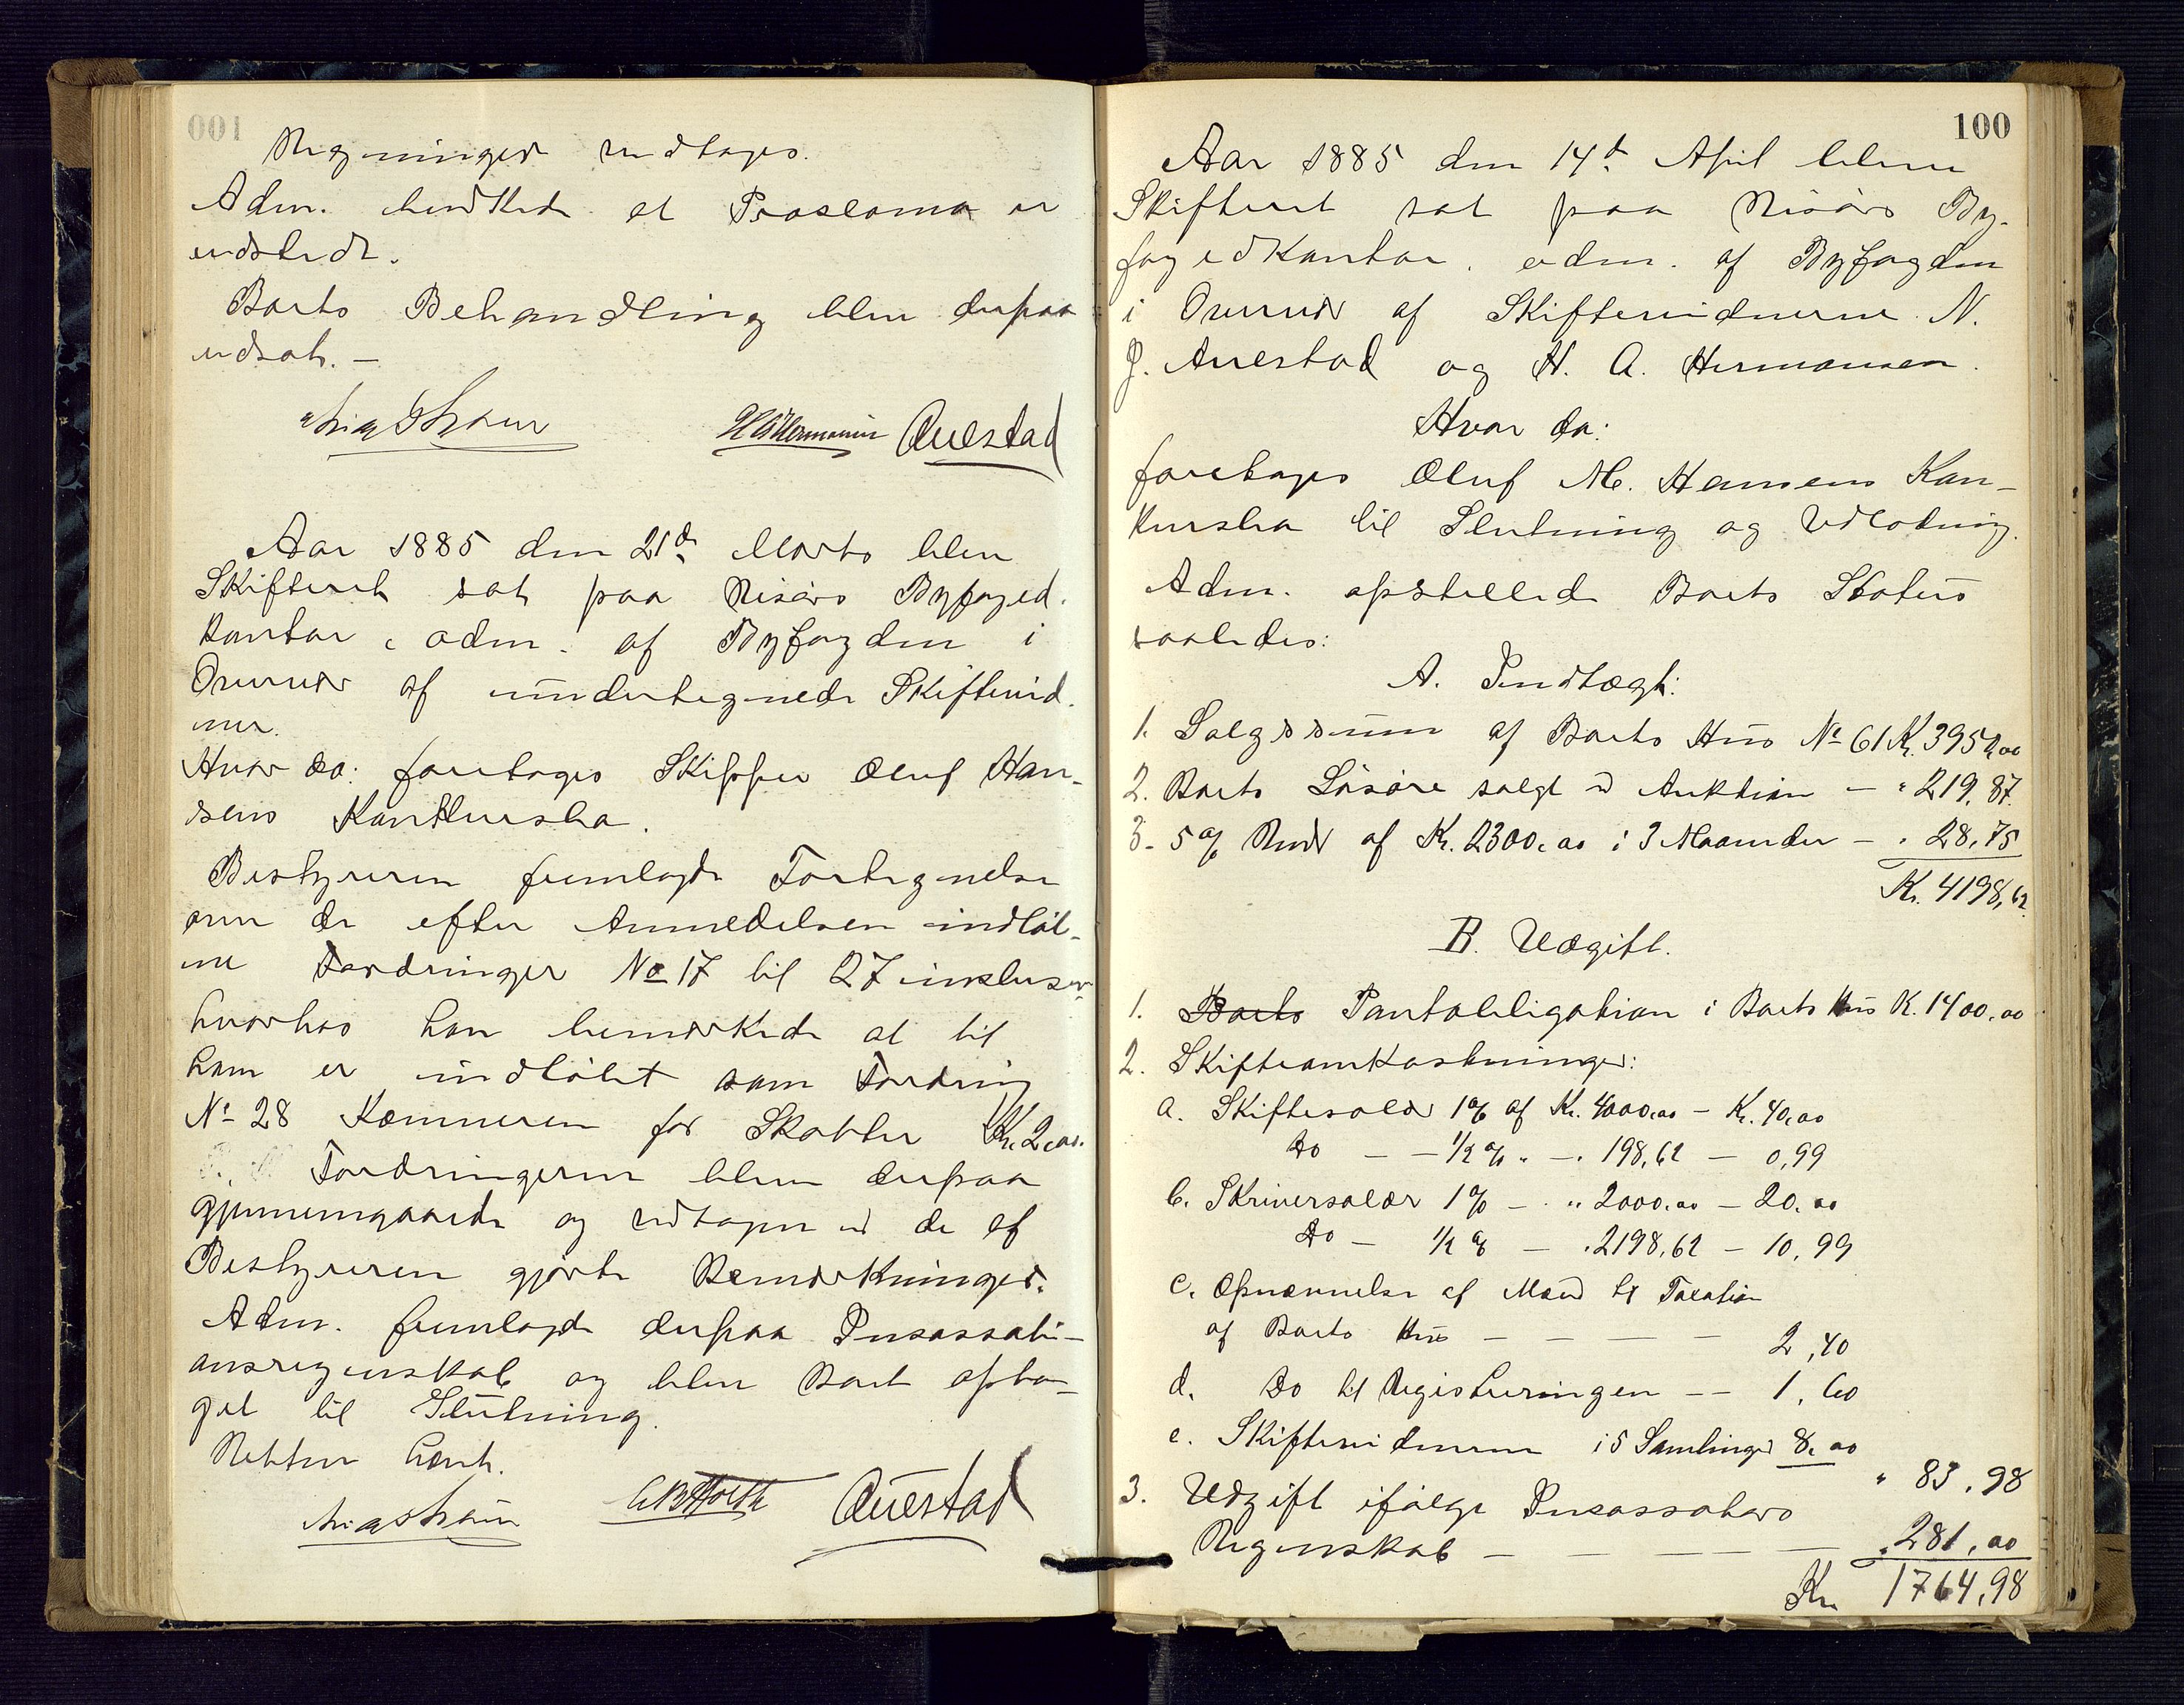 Regninger vedtages.
Adm. bemærkede at Proclama er
udstedt.
Boets Behandling blev derpaa
udsat. —
HAHermansen Auestad
Aar 1885 den 21de Marts blev
Skifteret sat paa Risørs Byfoged-
kontor, adm. af Byfogden i
Overvær af undertegnede Skiftevid-
ner.
Hvor da: foretoges Skipper Oluf Han-
sens Konkursbo.
Bestyreren fremlagde Fortegnelse
over de efter Anmeldelsen indløb-
ne Fordringer No 17 til 27 inclusive
hvorhos han bemærkede at til
ham er indløbet som Fordring
No 28 Kæmneren for Skatter Kr. 2,00.
Fordringerne blev derpaa
gjennemgaaede og vedtagne med de af
Bestyreren gjorte Bemærkninger.
Adm. fremlagde derpaa Incassati-
onsregnskab og blev Boet opta-
get til Slutning.
Retten hævet.
Auestad
100
Aar 1885 den 14de April blev
Skifteret sat paa Risørs By-
fogedkontor, adm. af Byfogden
i Overvær af Skiftevidnerne N.
J. Auestad og H. A. Hermansen.
Hvor da:
foretoges Oluf M. Hansens Kon-
kursbo til Slutning og Udlodning.
Adm. opstillede Boets Status
saaledes:
A. Indtægt:
1. Salgssum af Boets Hus No 61 Kr. 3950,00
2. Boets Løsøre solgt v Auktion — " 219,87.
3. 5 % Rente af Kr. 2300,00 i 3 Maaneder — " 28,75
Kr. 4198,62.
B. Udgift.
1. Boets Pantobligation i Boets Hus K. 1400,00
2. Skifteomkostninger:
a. Skiftesalær 1 % af Kr. 4000,00 — Kr. 40,00
Do — — 1/2 % " — " 198,62 — 0,99
b. Skriversalær 1 % — " 2000,00 — 20,00
Do — 1/2 % — " 2198,62 — 10,99
c. Opnævnelse af Mænd til Taxation
af Boets Hus — — — — 2,40
d. Do til Registreringen — — 1,60
e. Skiftevidnerne i 5 Samlinger 8,00
" 83,98
3. Udgift ifølge Incassators
Regnskab — — — — — " 281,00
Kr. 1764,98